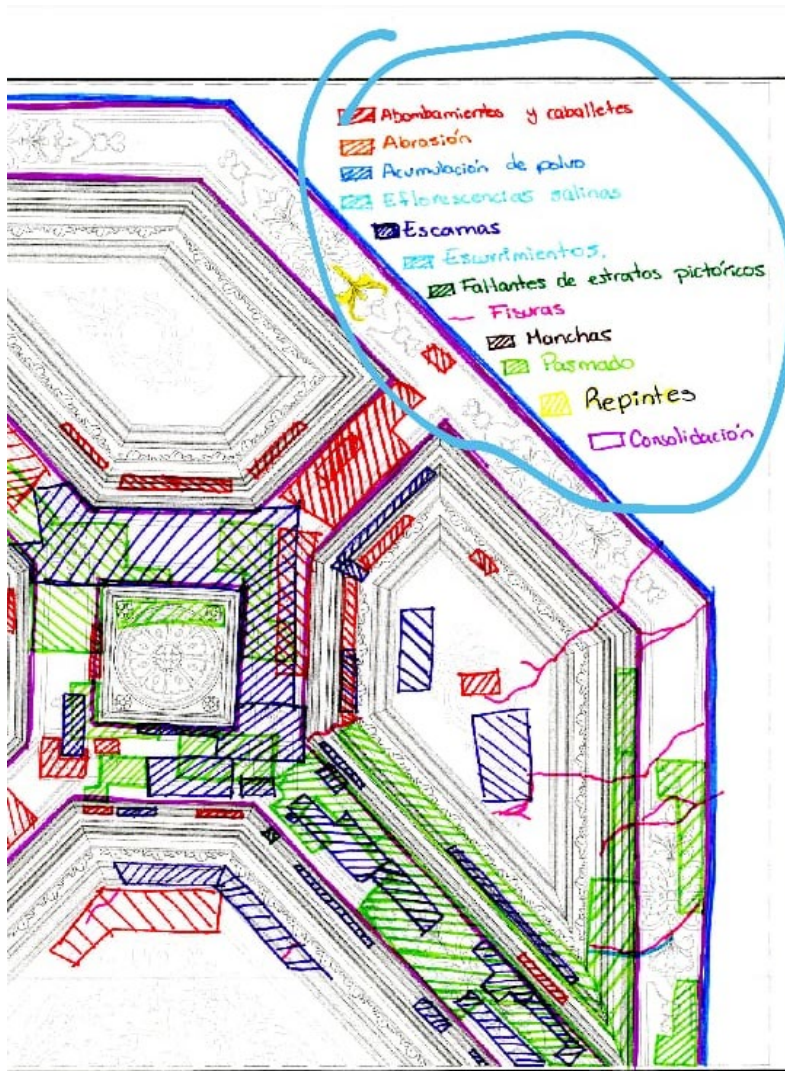 Abombamientos y caballetes
Abrasión
Acumulación de polvo
Eflorescencias salinas
Escamas
Escurrimientos.
Faltantes de estratos pictóricos
Fisuras
Manchas
Pasmado
Repintes
Consolidación